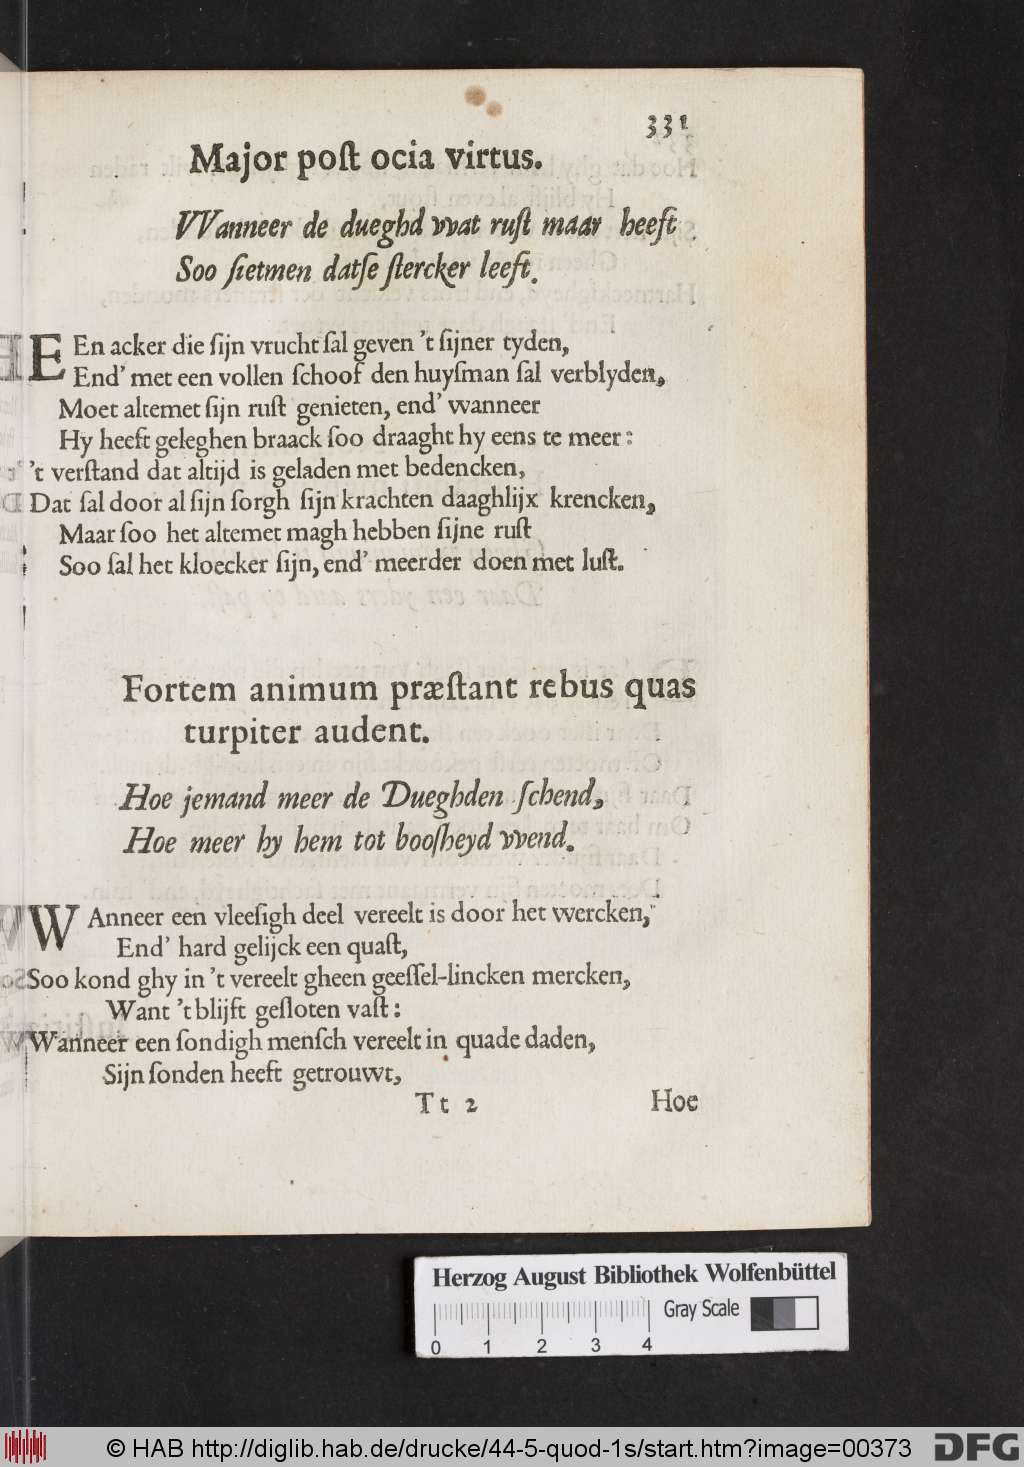 331
Major poſt ocia virtus.
VVanneer de dueghd vvat ruſt maar heeft
Soo ſietmen datſe ſtercker leeft.
EEn acker die ſijn vrucht ſal geven 't ſijner tyden,
End' met een vollen ſchoof den huyſman ſal verblyden,
Moet altemet ſijn ruſt genieten, end' wanneer
Hy heeft geleghen braack ſoo draaght hy eens te meer:
't verſtand dat altijd is geladen met bedencken,
Dat ſal door al ſijn ſorgh ſijn krachten daaghlijx krencken,
Maar ſoo het altemet magh hebben ſijne ruſt
Soo ſal het kloecker ſijn, end' meerder doen met luſt.
Fortem animum præſtant rebus quas
turpiter audent.
Hoe jemand meer de Dueghden ſchend,
Hoe meer hy hem tot booſheyd vvend.
WAnneer een vleeſigh deel vereelt is door het wercken,
End' hard gelijck een quaſt,
Soo kond ghy in 't vereelt gheen geeſſel-lincken mercken,
Want 't blijft geſloten vaſt:
Wanneer een ſondigh menſch vereelt in quade daden,
Sijn ſonden heeft getrouwt,
Tt 2 Hoe
Herzog August Bibliothek Wolfenbüttel
Gray Scale
0 1 2 3 4
© HAB http://diglib.hab.de/drucke/44-5-quod-1s/start.htm?image=00373 DFG